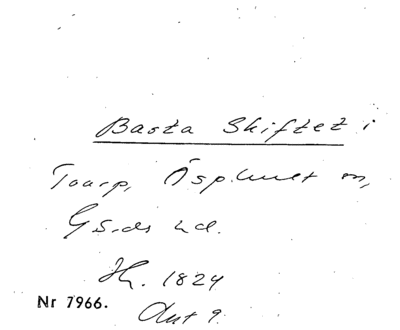 Basta Skiftet i
Toarp, Ösphult m,
Gärds hd.
Hr. 1824
Nr 7966.
Ant 9.